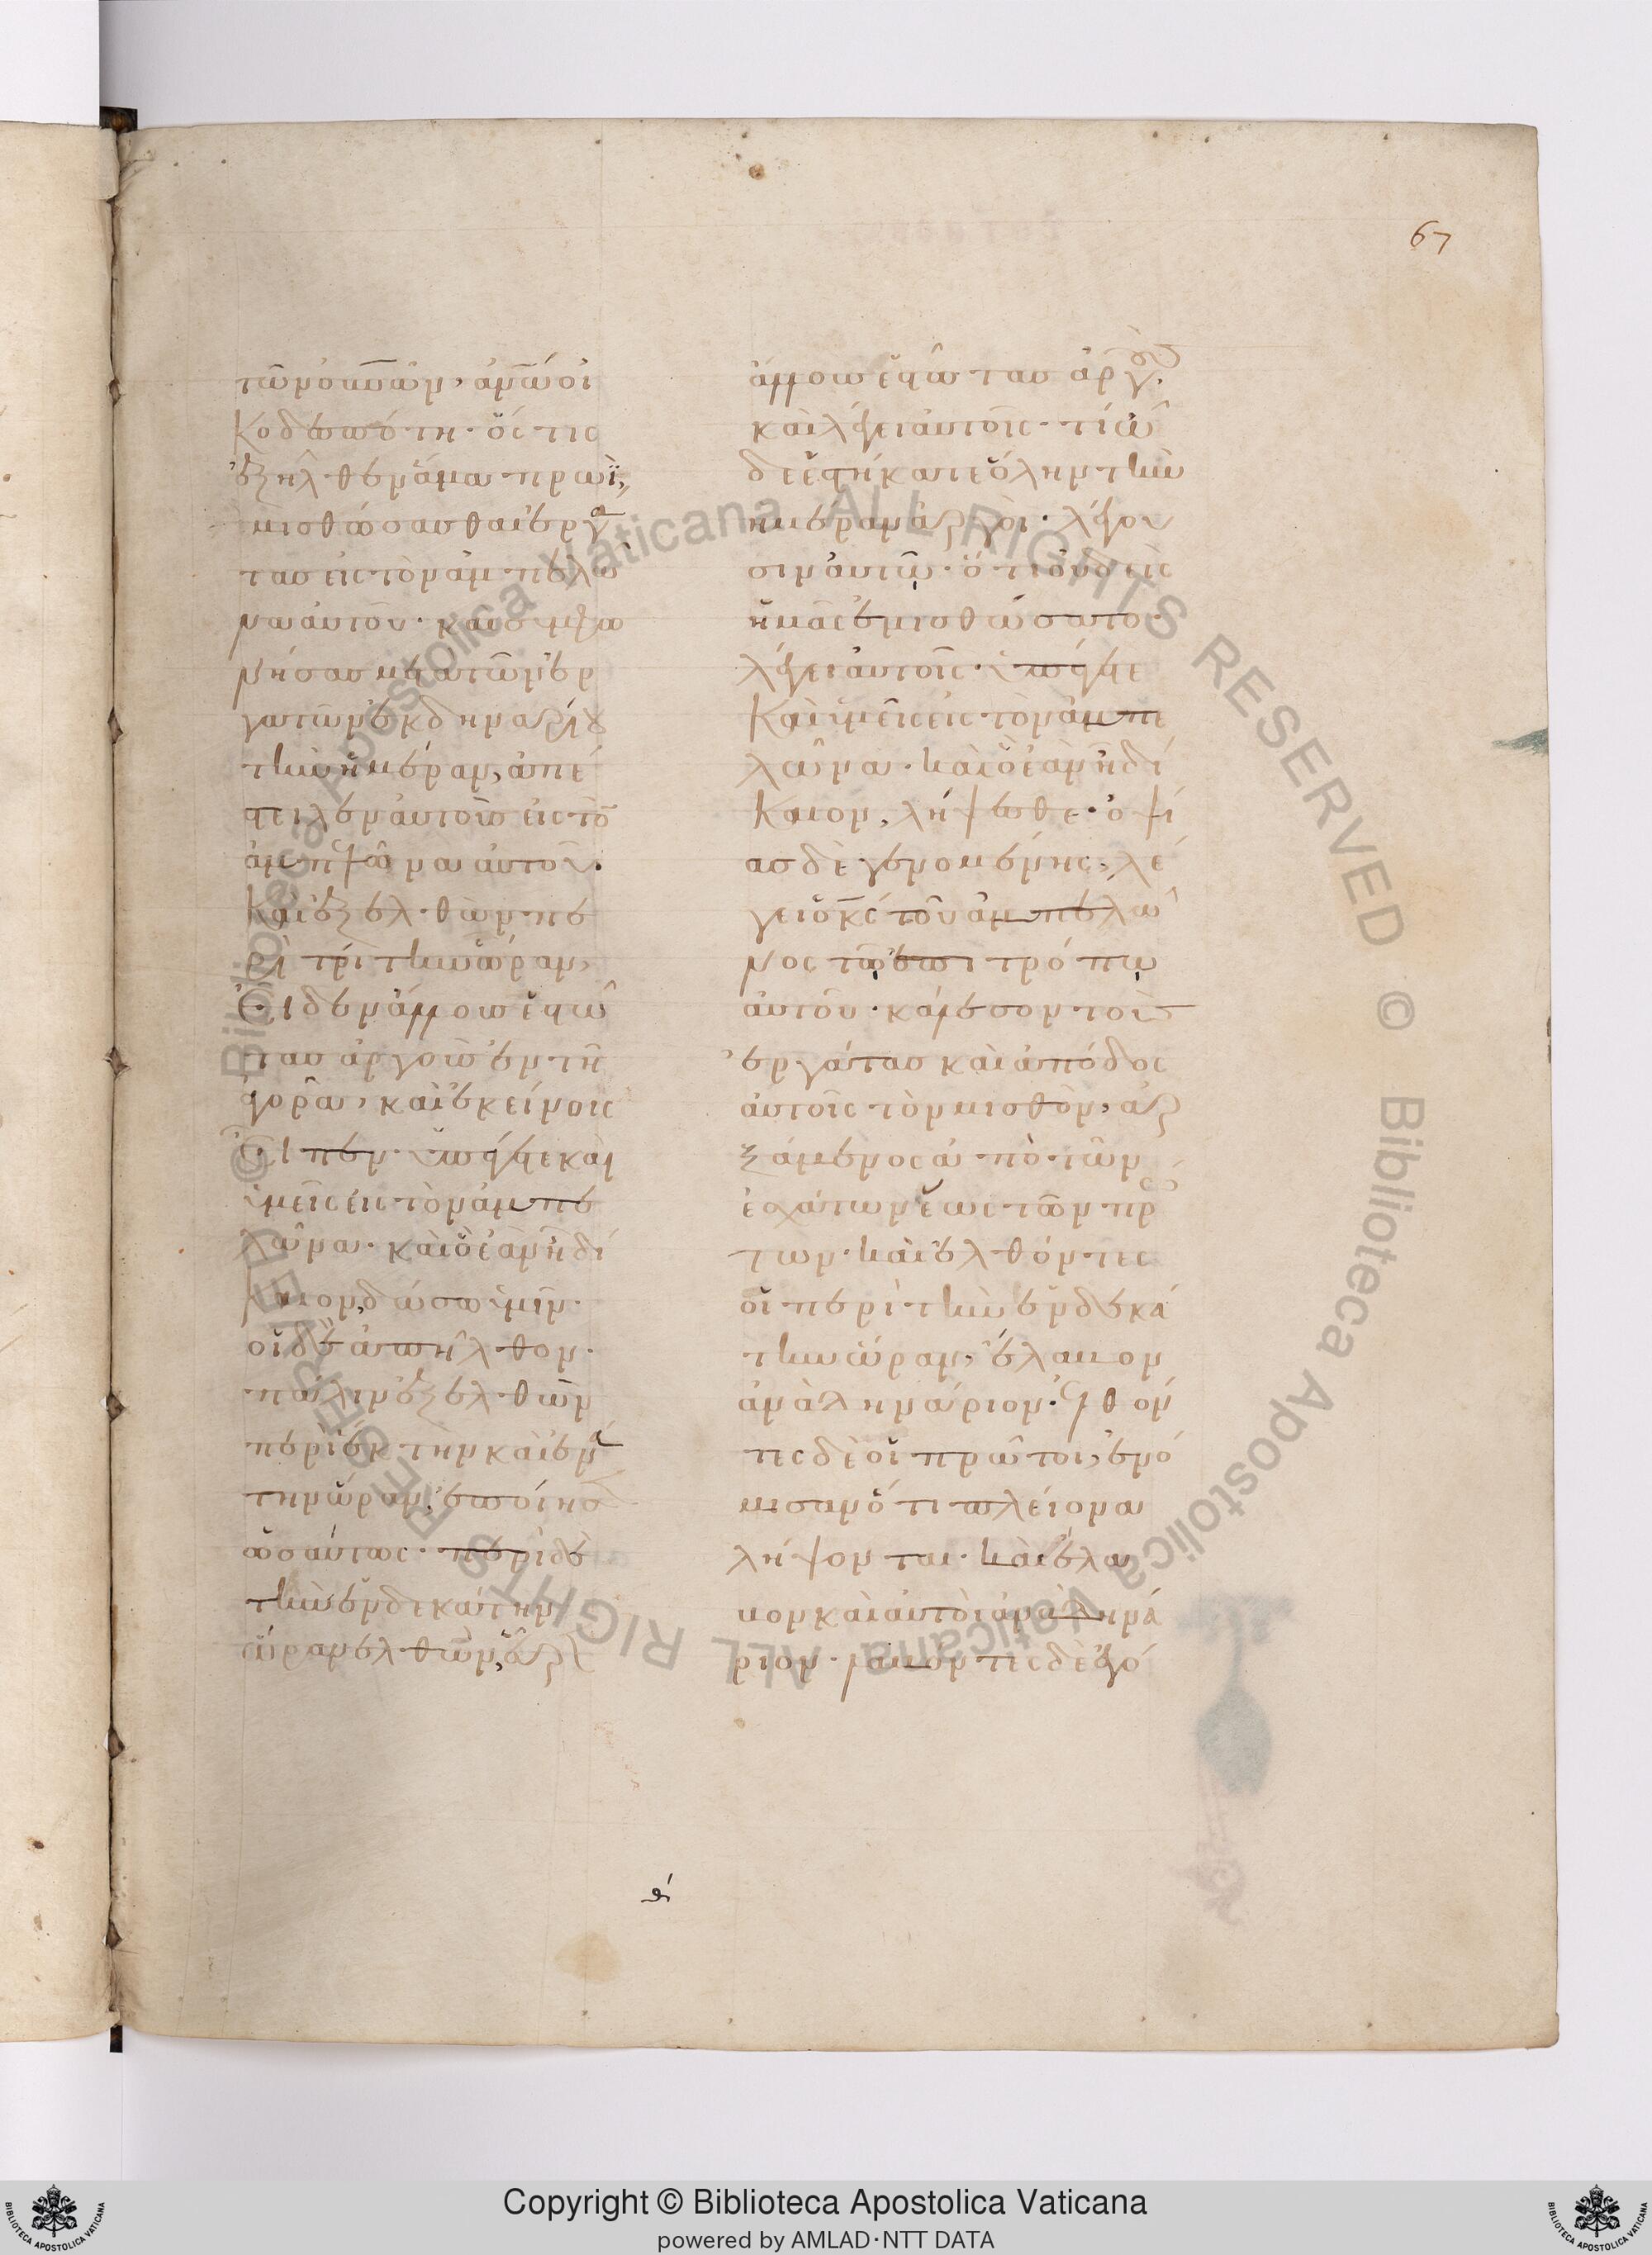 67
τῶν οὐνῶν, ἀνω̅ οἰ
κοδεσπότη· ὅς τις
ἐξῆλθεν ἅμα πρωῒ,
μισθώσασθαι ἐργά
τας εἰς τὸν ἀμπελῶ
να αὐτοῦ· καὶ συμφω
νήσας μετὰ τῶν ἐρ
γατῶν ἐκ δηναρίου
τὴν ἡμέραν, ἀπέ
στειλεν αὐτοὺς εἰς τὸ
ἀμπελῶνα αὐτοῦ.
καὶ ἐξελθὼν πε
ρὶ τρίτην ὥραν,
εἶδεν ἄλλους ἑστῶ
τας ἀργοὺς ἐν τῆ
ἀγορᾶ, καὶ ἐκείνοις
εἶπεν· ὑπάγετε καὶ
ὑμεῖς εἰς τὸν ἀμπε
λῶνα· καὶ ὃ ἐὰν ἦ δί
καιον, δώσω ὑμῖν·
οἱ δὲ ἀπῆλθον·
πάλιν ἐξελθὼν
περὶ ἕκτην καὶ ἐνά
την ὥραν, ἐποίησ
ὡσαύτως· περὶ δὲ
τὴν ἑνδεκάτην
ὥραν ἐλθὼν, εὗρε
ἄλλους ἑστῶτας ἀργοὺς·
καὶ λέγει αὐτοῖς· τί ὧ
δε ἑστήκατε ὅλην τὴν
ἡμέραν ἀργοὶ· λέγου
σιν αὐτῷ· ὅτι οὐδεὶς
ἡμᾶς ἐμισθώσατο·
λέγει αὐτοῖς· ὑπάγετε
καὶ ὑμεῖς εἰς τὸν ἀμπε
λῶνα· καὶ ὃ ἐὰν ἦ δί
καιον, λήψεσθε· ὀψί
ας δὲ γενομένης, λέ
γει ὁ κ̅ς̅ τοῦ ἀμπελῶ
νος τῷ ἐπιτρόπῳ
αὐτοῦ· κάλεσον τοὺς
ἐργάτας καὶ ἀπόδος
αὐτοῖς τὸν μισθὸν, ἀρ
ξάμενος ἀπὸ τῶν
ἐσχάτων ἕως τῶν πρώ
των· καὶ ἐλθόντες
οἱ περὶ τὴν ἑνδεκά
την ὥραν, ἔλαβον
ἀνὰ δηνάριον· ἐλθόν
τες δὲ οἱ πρῶτοι, ἐνό
μισαν ὅτι πλείονα
λήψονται· καὶ ἔλα
βον καὶ αὐτοὶ ἀνὰ δηνά
ριον· λαβόντες δὲ ἐγό
Copyright © Biblioteca Apostolica Vaticana
powered by AMLAD·NTT DATA